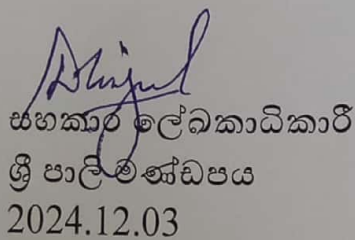 සහකාර ලේඛකාධිකාරී
ශ්‍රී පාලි මණ්ඩපය
2024.12.03